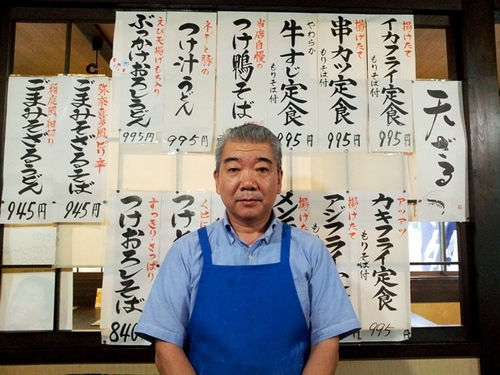 天ざる
揚げたて
イカフライ定食
もりそば付
995円
揚げたて
串カツ定食
もりそば付
995円
やわらか
牛すじ定食
もりそば付
995円
当店自慢の
つけ鴨そば
ネギと豚の
つけ汁うどん
995円
えび天揚げもち入り
ぶっかけおろしうどん
995円
弥奈喜多風ピリ辛
ごまみそざるそば
945円
稲庭風細切り
ごまみそざるうどん
945円
アツアツ
カキフライ定食
もりそば付
995円
揚げたて
アジフライ定
も
揚げ
メン
くせに
つけと
すっきりさっぱり
つけおろしそば
840